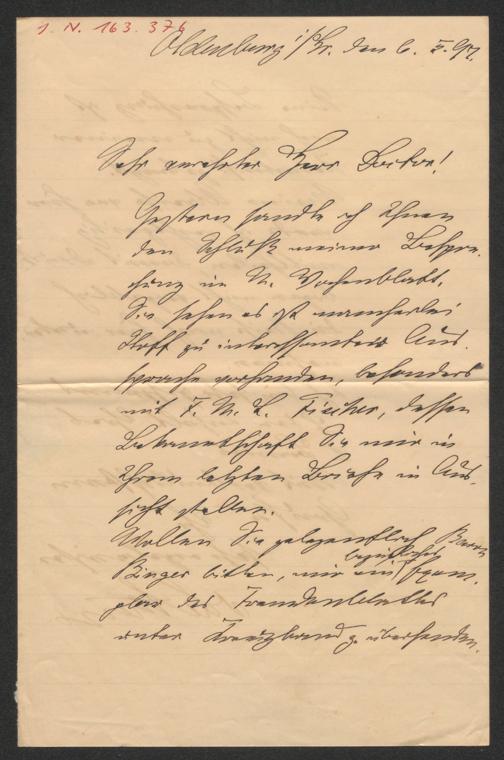 J. N. 163.376
Oldenburg i/Gr. den 6. 5. 97.
Sehr verehrter Herr Doctor!
Gestern sandte ich Ihnen
den Schluß meiner Bespre-
chung im N. Wochenblatt.
Sie sehen es ist mancherlei
Stoff zu interessanter Aus-
sprache vorhanden, besonders
mit F. M. L. Fischer, dessen
Bekanntschaft Sie mir in
Ihrem letzten Briefe in Aus-
sicht stellen.
Wollen Sie gelegentlich Baron
Binger bitten, mir ein bezügliches Exem-
plar des Fremdenblattes
unter Kreuzband zu übersenden.